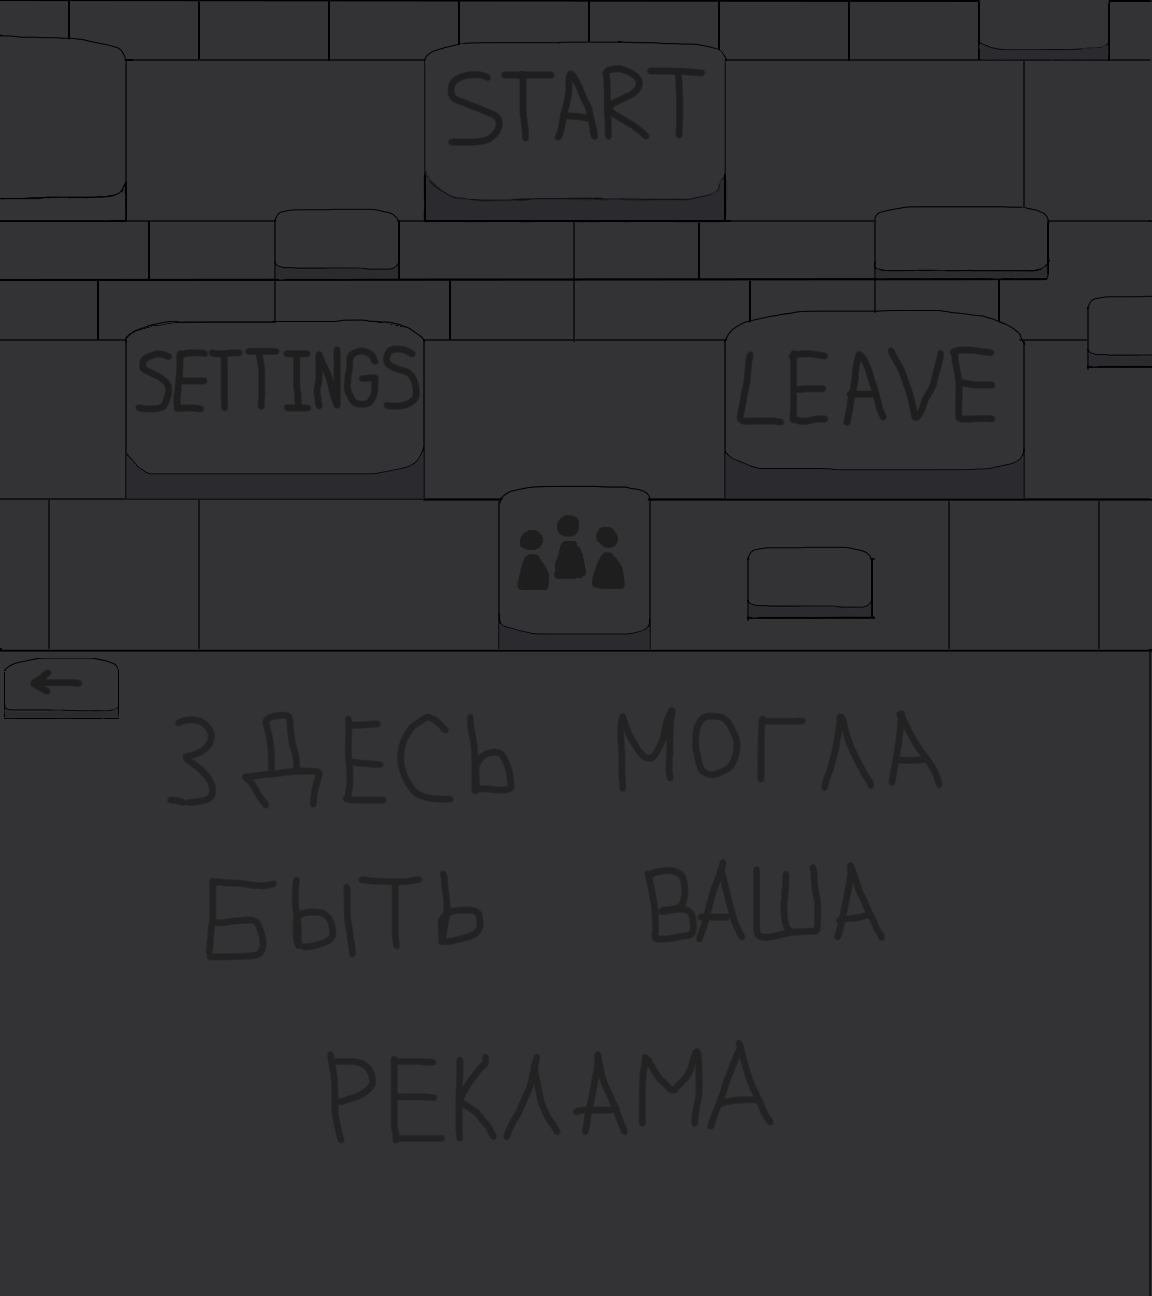 START
SETTINGS LEAVE
ЗДЕСЬ МОГЛА
БЫТЬ ВАША
РЕКЛАМА